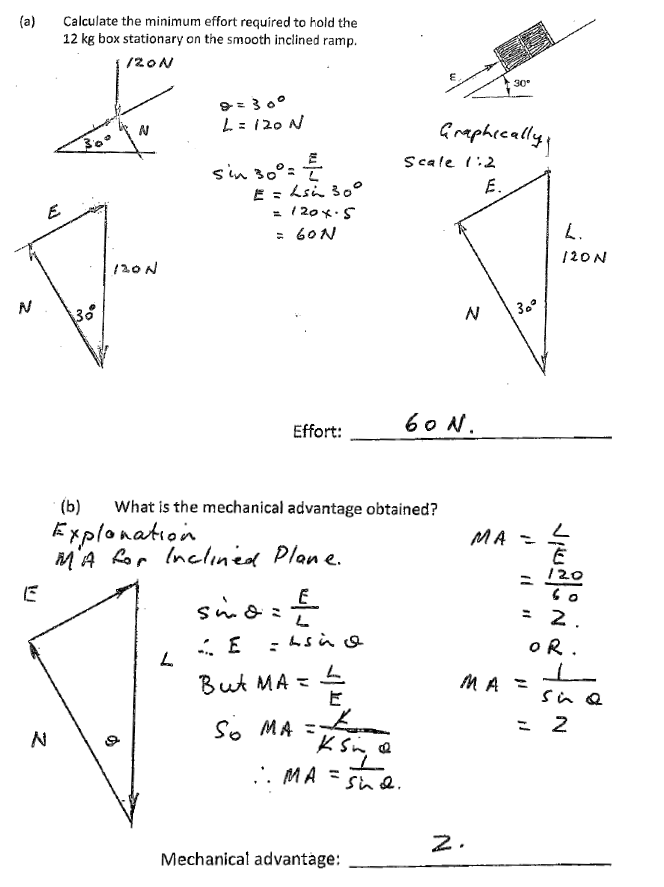 (a) Calculate the minimum effort required to hold the
12 kg box stationary on the smooth inclined ramp.
120N
N
30°
θ = 30°
L = 120 N
sin 30° = E/L
E = L sin 30°
= 120 x .5
= 60N
E
30°
Graphically,
Scale 1:2
E.
L.
120N
N
30°
E
120N
N
30°
Effort: 60 N.
(b) What is the mechanical advantage obtained?
Explanation
MA for Inclined Plane.
E
L
N
θ
sin θ = E/L
∴ E = L sin θ
But MA = L/E
So MA = L/L sin θ
∴ MA = 1/sin θ.
MA = L/E
= 120/60
= 2.
OR.
MA = 1/sin θ
= 2
Mechanical advantage: 2.